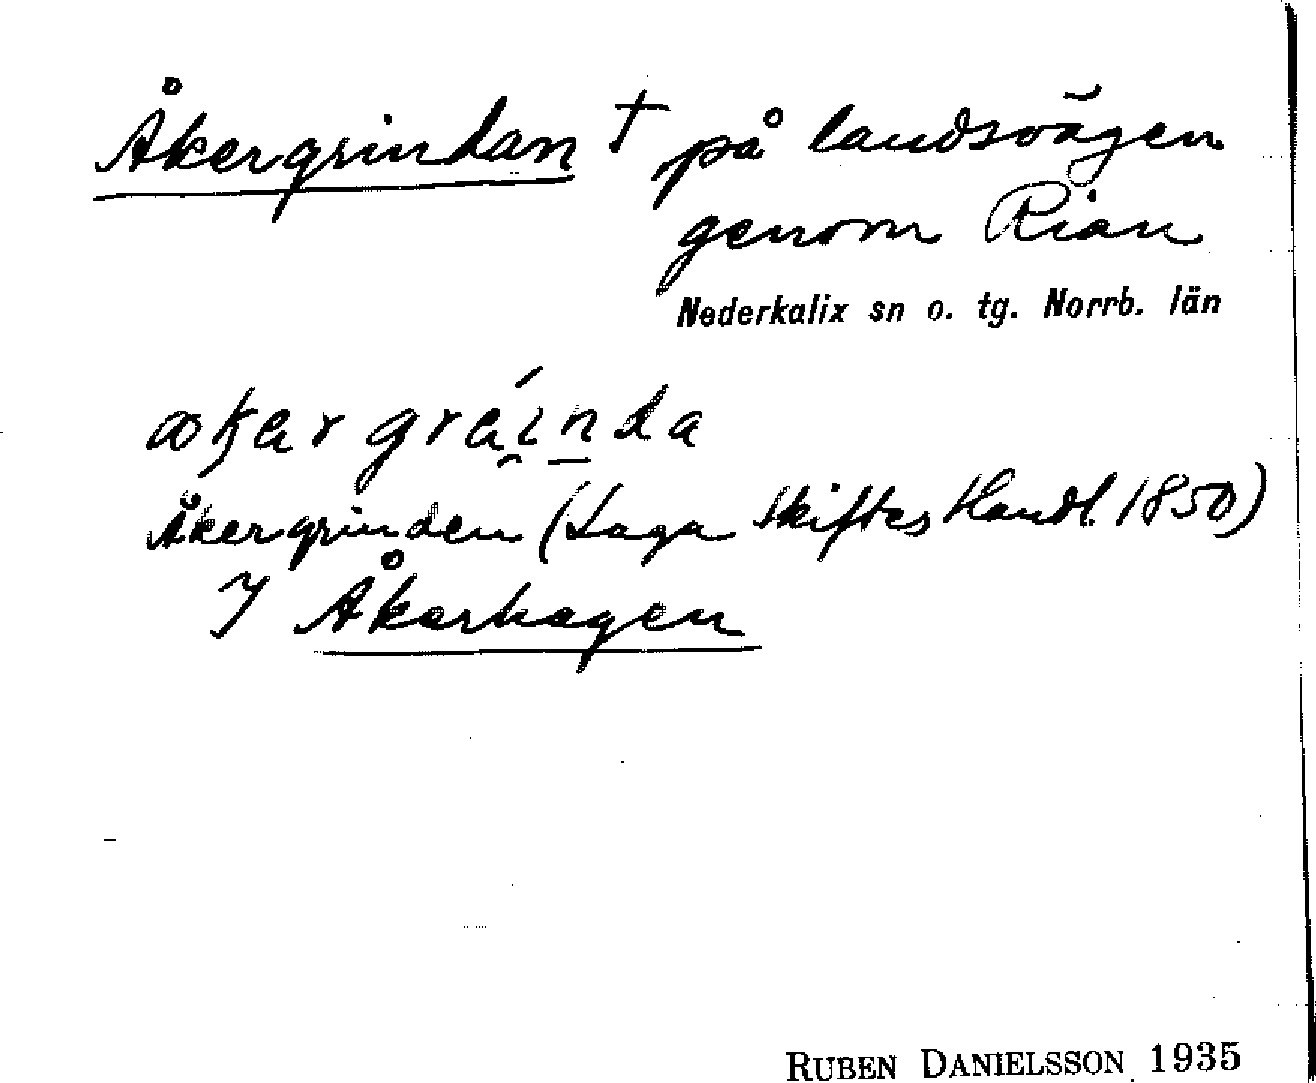 Åkergrindan † på landsvägen
genom Rian
Nederkalix sn o. tg. Norrb. län
Åkergrinden (Laga Skiftes Handl. 1850)
I Åkerhagen
RUBEN DANIELSSON 1935